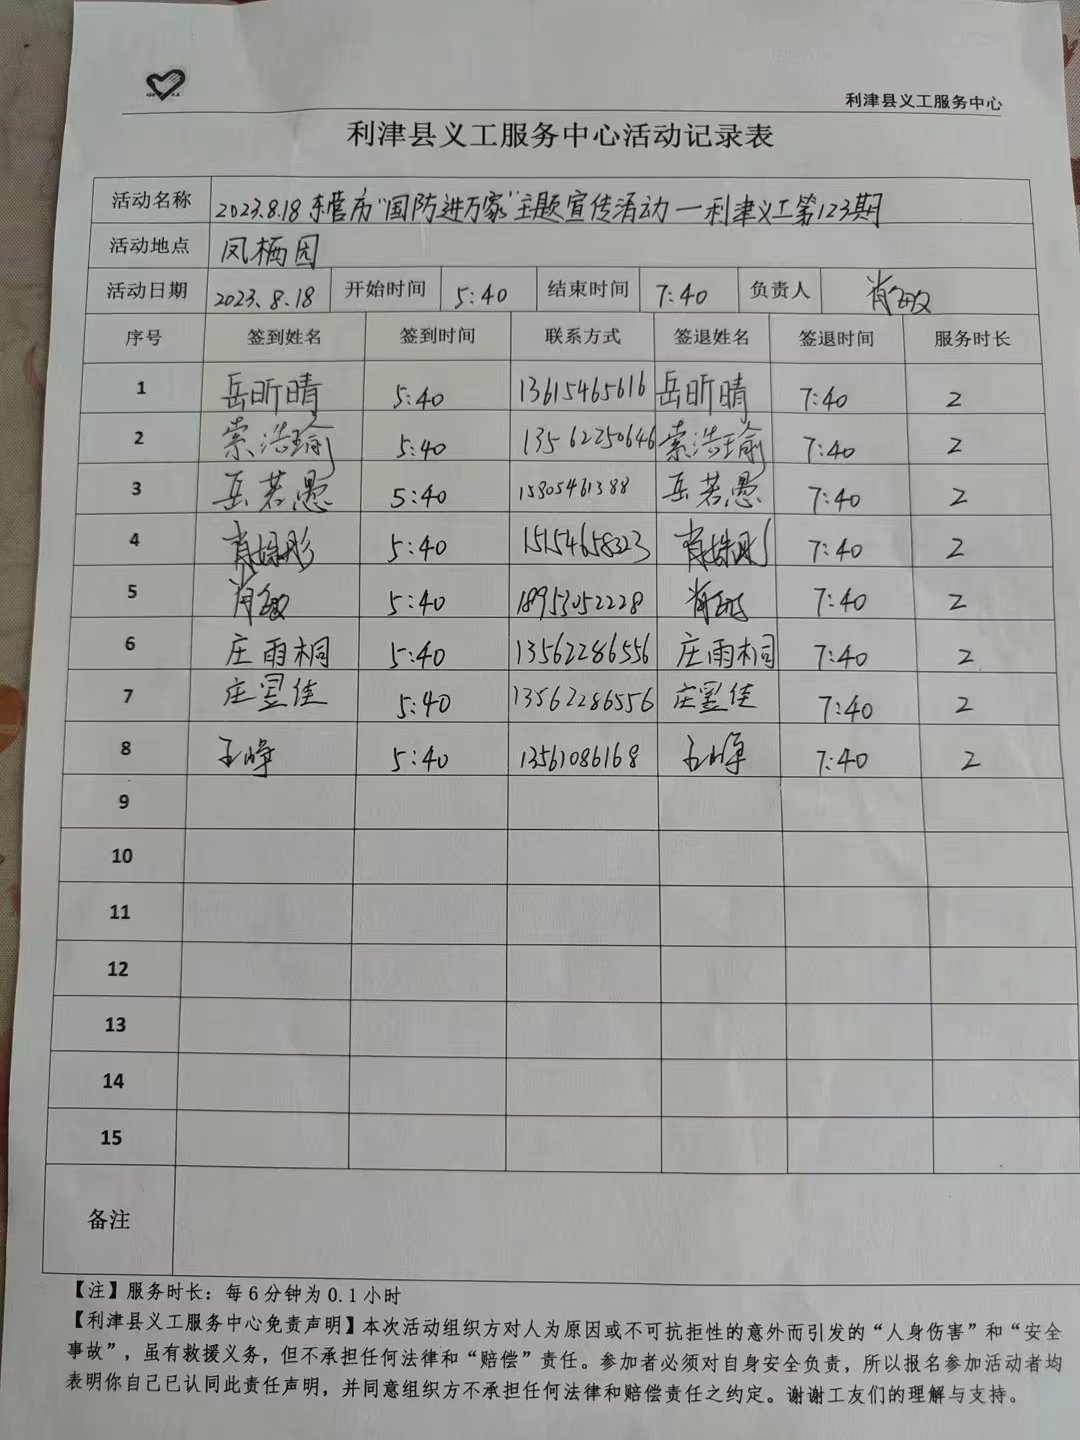 利津县义工服务中心
利津县义工服务中心活动记录表
活动名称 2023.8.18东营市“国防进万家”主题宣传活动一利津义工第123期
活动地点 凤栖园
活动日期 2023.8.18 开始时间 5:40 结束时间 7:40 负责人 肖敏
序号 签到姓名 签到时间 联系方式 签退姓名 签退时间 服务时长
1 岳昕晴 5:40 13615465616 岳昕晴 7:40 2
2 索浩瑜 5:40 13562250646 索浩瑜 7:40 2
3 岳若愚 5:40 15305461388 岳若愚 7:40 2
4 5:40 15154658323 7:40 2
5 肖敏 5:40 18953052228 肖敏 7:40 2
6 庄雨桐 5:40 13562286556 庄雨桐 7:40 2
7 庄昱佳 5:40 13562286556 庄昱佳 7:40 2
8 5:40 13561086168 7:40 2
9
10
11
12
13
14
15
备注
【注】服务时长：每6分钟为0.1小时
【利津县义工服务中心免责声明】本次活动组织方对人为原因或不可抗拒性的意外而引发的“人身伤害”和“安全
事故”，虽有救援义务，但不承担任何法律和“赔偿”责任。参加者必须对自身安全负责，所以报名参加活动者均
表明你自己已认同此责任声明，并同意组织方不承担任何法律和赔偿责任之约定。谢谢工友们的理解与支持。